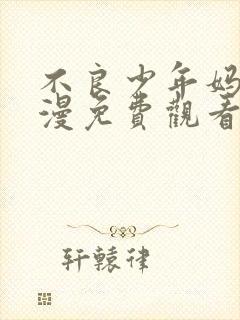 不良少年妈
漫免費觀看
轩辕律